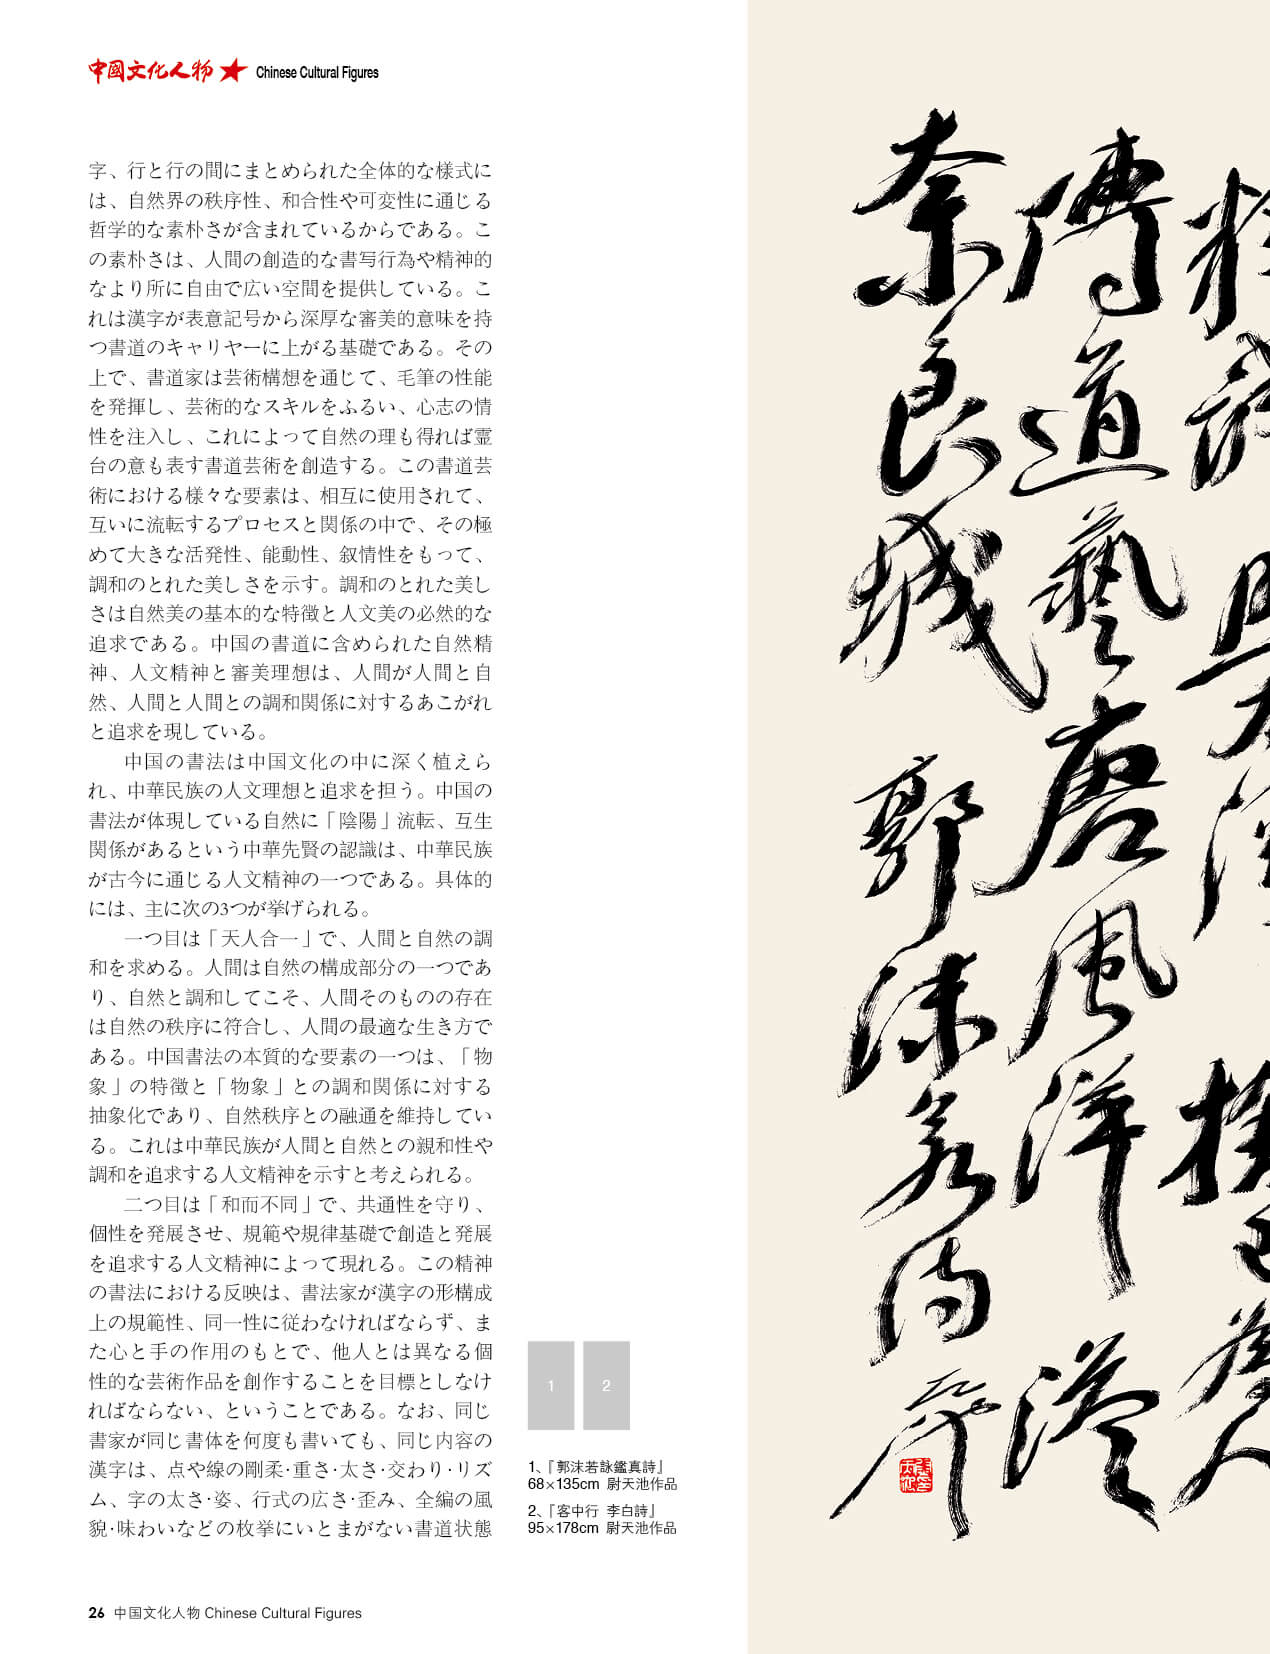 中國文化人物 ★ Chinese Cultural Figures
字、行と行の間にまとめられた全体的な様式に
は、自然界の秩序性、和合性や可変性に通じる
哲学的な素朴さが含まれているからである。こ
の素朴さは、人間の創造的な書写行為や精神的
なより所に自由で広い空間を提供している。こ
れは漢字が表意記号から深厚な審美的意味を持
つ書道のキャリヤーに上がる基礎である。その
上で、書道家は芸術構想を通じて、毛筆の性能
を発揮し、芸術的なスキルをふるい、心志の情
性を注入し、これによって自然の理も得れば霊
台の意も表す書道芸術を創造する。この書道芸
術における様々な要素は、相互に使用されて、
互いに流転するプロセスと関係の中で、その極
めて大きな活発性、能動性、叙情性をもって、
調和のとれた美しさを示す。調和のとれた美し
さは自然美の基本的な特徴と人文美の必然的な
追求である。中国の書道に含められた自然精
神、人文精神と審美理想は、人間が人間と自
然、人間と人間との調和関係に対するあこがれ
と追求を現している。
中国の書法は中国文化の中に深く植えら
れ、中華民族の人文理想と追求を担う。中国の
書法が体現している自然に「陰陽」流転、互生
関係があるという中華先賢の認識は、中華民族
が古今に通じる人文精神の一つである。具体的
には、主に次の3つが挙げられる。
一つ目は「天人合一」で、人間と自然の調
和を求める。人間は自然の構成部分の一つであ
り、自然と調和してこそ、人間そのものの存在
は自然の秩序に符合し、人間の最適な生き方で
ある。中国書法の本質的な要素の一つは、「物
象」の特徴と「物象」との調和関係に対する
抽象化であり、自然秩序との融通を維持してい
る。これは中華民族が人間と自然との親和性や
調和を追求する人文精神を示すと考えられる。
二つ目は「和而不同」で、共通性を守り、
個性を発展させ、規範や規律基礎で創造と発展
を追求する人文精神によって現れる。この精神
の書法における反映は、書法家が漢字の形構成
上の規範性、同一性に従わなければならず、ま
た心と手の作用のもとで、他人とは異なる個
性的な芸術作品を創作することを目標としなけ
ればならない、ということである。なお、同じ
書家が同じ書体を何度も書いても、同じ内容の
漢字は、点や線の剛柔·重さ·太さ·交わり·リズ
ム、字の太さ·姿、行式の広さ·歪み、全編の風
貌·味わいなどの枚挙にいとまがない書道状態
1 2
1、「郭沫若詠鑑真詩」
68×135cm 尉天池作品
2、「客中行 李白詩」
95×178cm 尉天池作品
傳道藝唐風洋溢
奈良城 郭沫若詩
26 中国文化人物 Chinese Cultural Figures